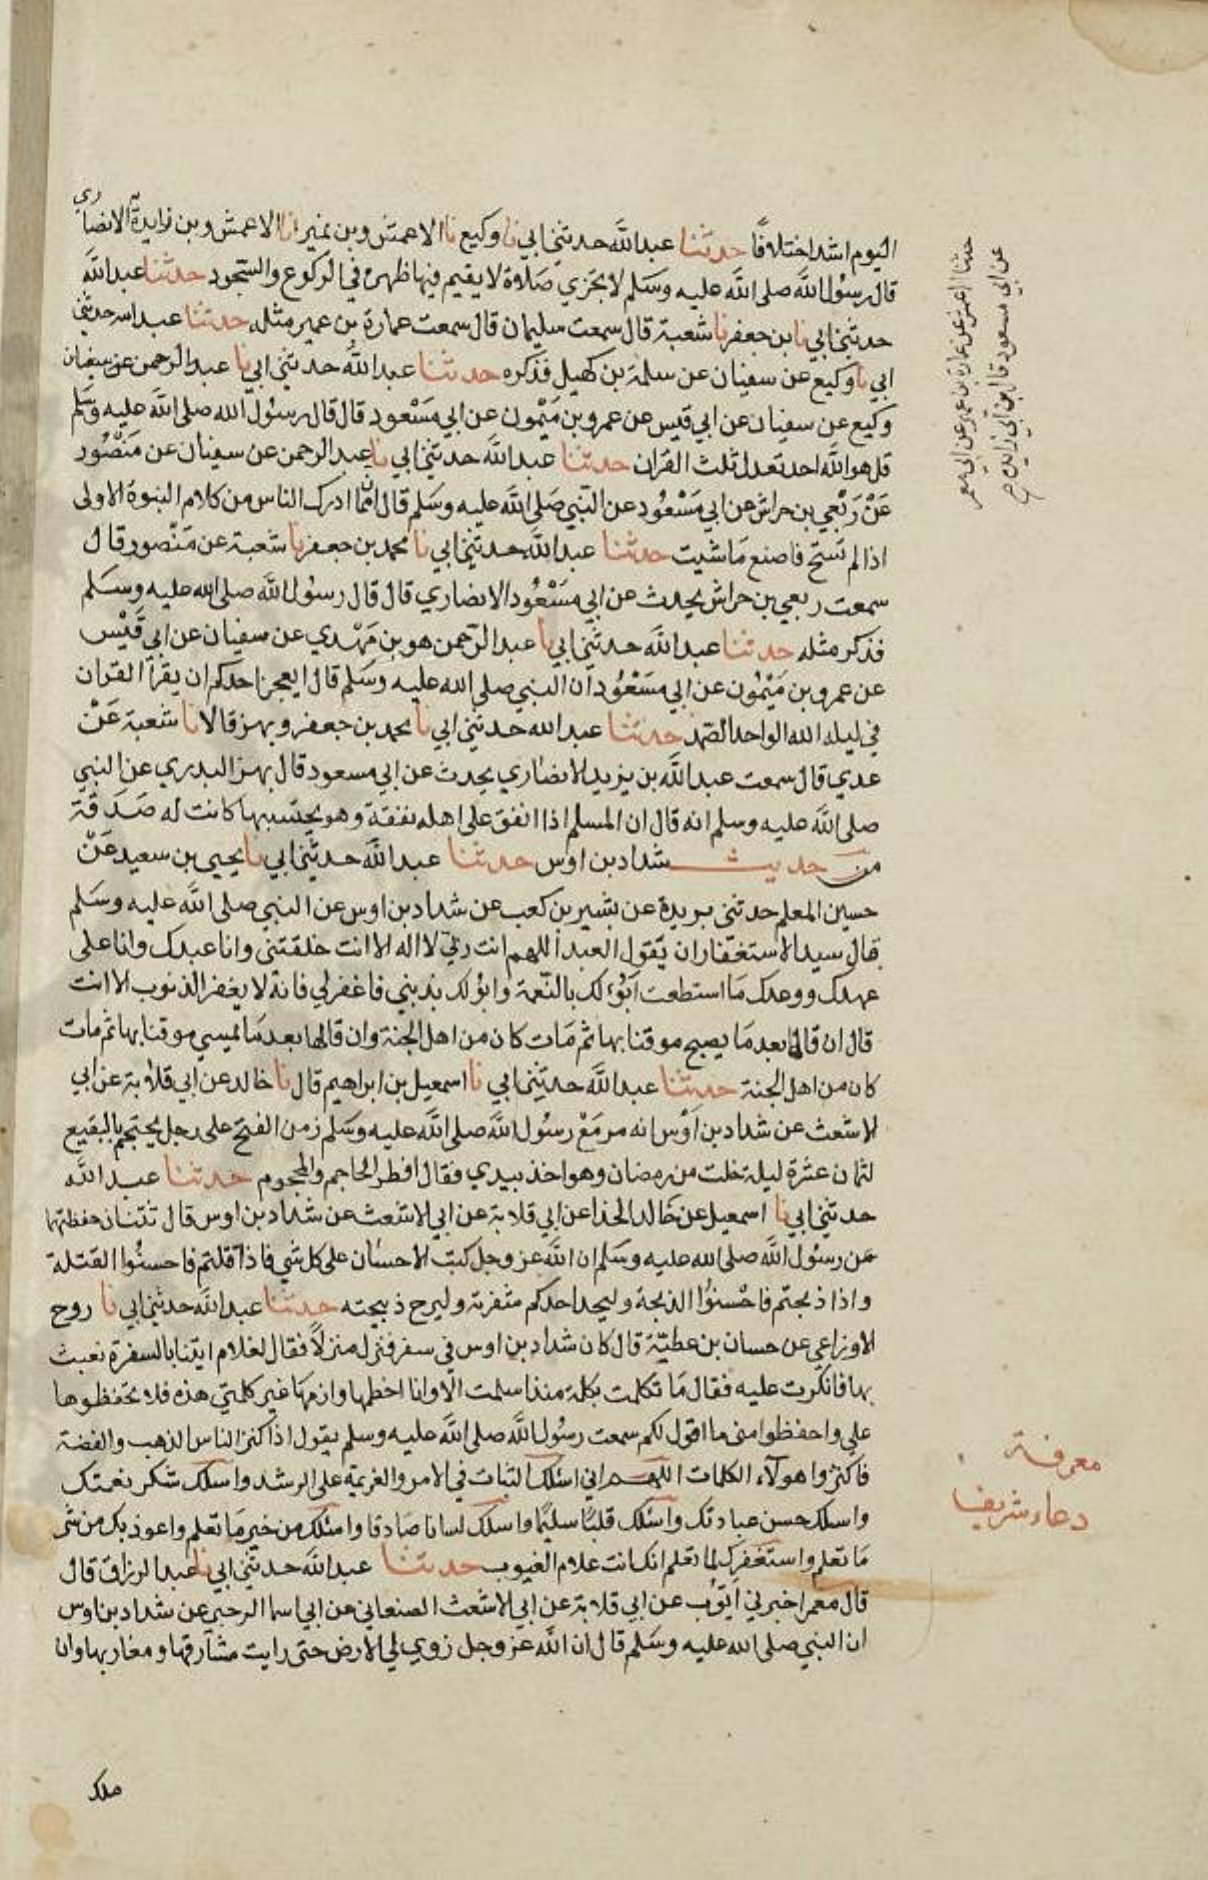 اليوم اشد اختلافًا حدثنا عبد الله حدثني ابي نا وكيع نا الاعمش وبن نمير انا الاعمش وبن زايدة الانصاري
قال رسول الله صلى الله عليه وسلم لا يجزي صلاة لا يقيم فيها ظهره في الركوع والسجود حدثنا عبد الله
حدثني ابي نا بن جعفر نا شعبة قال سمعت سليمان قال سمعت عمارة بن عمير مثله حدثنا عبد الله حدثني
ابي نا وكيع عن سفيان عن سلمة بن كهيل فذكره حدثنا عبد الله حدثني ابي نا عبد الرحمن عن سفيان
وكيع عن سفيان عن ابي قيس عن عمرو بن ميمون عن ابي مسعود قال قال رسول الله صلى الله عليه وسلم
قل هو الله احد تعدل ثلث القران حدثنا عبد الله حدثني ابي نا عبد الرحمن عن سفيان عن منصور
عن ربعي بن حراش عن ابي مسعود عن النبي صلى الله عليه وسلم قال انما ادرك الناس من كلام النبوة الاولى
اذا لم تستح فاصنع ما شيت حدثنا عبد الله حدثني ابي نا محمد بن جعفر نا شعبة عن منصور قال
سمعت ربعي بن حراش يحدث عن ابي مسعود الانصاري قال قال رسول الله صلى الله عليه وسلم
فذكر مثله حدثنا عبد الله حدثني ابي نا عبد الرحمن هو بن مهدي عن سفيان عن ابي قيس
عن عمرو بن ميمون عن ابي مسعود ان النبي صلى الله عليه وسلم قال ايعجز احدكم ان يقرأ القران
في ليله الله الواحد الصمد حدثنا عبد الله حدثني ابي نا محمد بن جعفر وبهز قالا نا شعبة عن
عدي قال سمعت عبد الله بن يزيد الانصاري يحدث عن ابي مسعود قال بهز البدري عن النبي
صلى الله عليه وسلم انه قال ان المسلم اذا انفق على اهله نفقة وهو يحتسبها كانت له صدقة
من حديث شداد بن اوس حدثنا عبد الله حدثني ابي نا يحيى بن سعيد عن
حسين المعلم حدثني بريدة عن بشير بن كعب عن شداد بن اوس عن النبي صلى الله عليه وسلم
قال سيد الاستغفار ان يقول العبد اللهم انت ربي لا اله الا انت خلقتني وانا عبدك وانا على
عهدك ووعدك ما استطعت ابوء لك بالنعمة وابؤ لك بذنبي فاغفر لي فانه لا يغفر الذنوب الا انت
قال ان قالها بعد ما يصبح موقنا بها ثم مات كان من اهل الجنة وان قالها بعد ما يمسي موقنا بها ثم مات
كان من اهل الجنة حدثنا عبد الله حدثني ابي نا اسمعيل بن ابراهيم قال نا خالد عن ابي قلابة عن ابي
الاشعث عن شداد بن اوس انه مر مع رسول الله صلى الله عليه وسلم زمن الفتح على رجل يحتجم بالبقيع
لثمان عشرة ليلة خلت من رمضان وهو اخذ بيدي فقال افطر الحاجم والمحجوم حدثنا عبد الله
حدثني ابي نا اسمعيل عن خالد الحذا عن ابي قلابة عن ابي الاشعث عن شداد بن اوس قال ثنتان حفظتهما
من رسول الله صلى الله عليه وسلم ان الله عز وجل كتب الاحسان على كل شي فاذا قتلتم فاحسنوا القتلة
واذا ذبحتم فاحسنوا الذبحة وليحد احدكم شفرته وليرح ذبيحته حدثنا عبد الله حدثني ابي نا روح
الاوزاعي عن حسان بن عطية قال كان شداد بن اوس في سفر فنزل منزلاً فقال لغلام ايتنا بالسفرة نعبث
بها فانكرت عليه فقال ما تكلمت بكلمة منذ اسلمت الا وانا اخطمها وازمها غير كلمتي هذه فلا تحفظوها
علي واحفظوا مني ما اقول لكم سمعت رسول الله صلى الله عليه وسلم يقول اذا كنز الناس الذهب والفضة
فاكنزوا هولاء الكلمات اللهم اني اسئلك الثبات في الامر والعزيمة على الرشد واسلك شكر نعمتك
واسلك حسن عبادتك واسئلك قلبًا سليمًا واسلك لسانا صادقا واسئلك من خير ما تعلم واعوذ بك من شر
ما تعلم واستغفرك لما تعلم انك انت علام الغيوب حدثنا عبد الله حدثني ابي نا عبد الرزاق قال
قال معمر اخبرني ايوب عن ابي قلابة عن ابي الاشعث الصنعاني عن ابي اسما الرحبي عن شداد بن اوس
ان النبي صلى الله عليه وسلم قال ان الله عز وجل زوى لي الارض حتى رايت مشارقها ومغاربها وان
ملك
حدثنا اعمش عن عمارة بن عمير عن ابي معمر
عن ابي مسعود قال بن ابي زايدة
معرفة
دعاء شريف